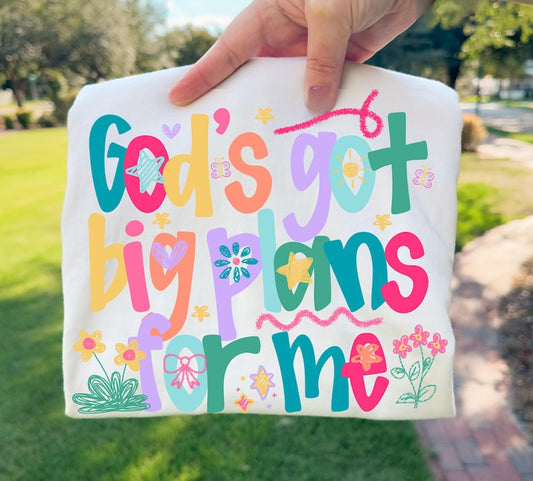 God's got
big plans
for me